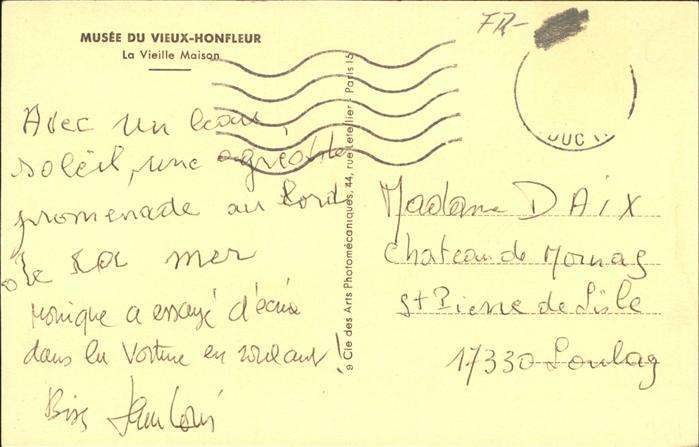 MUSÉE DU VIEUX-HONFLEUR
La Vieille Maison
FR-
Avec un beau
soleil, une agréable
promenade au bord
de la mer
Monique a essayé d'écrire
dans la voiture en roulant !
Bises Jean Louis
9 Cie des Arts Photomécaniques, 44, rue Letellier - Paris 15
Madame DAIX
Chateau de Mornay
St Pierre de L'isle
17330 Loulay